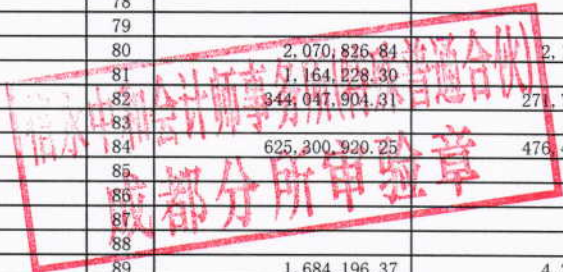 78
79
80 2,070,826.84 2,
81 1,164,228.30
82 344,047,904.31 271,
83
84 625,300,920.25 476,4
85
86
87
88
89 1,684,196.37 4,
信永中和会计师事务所(特殊普通合伙)
成都分所审验章